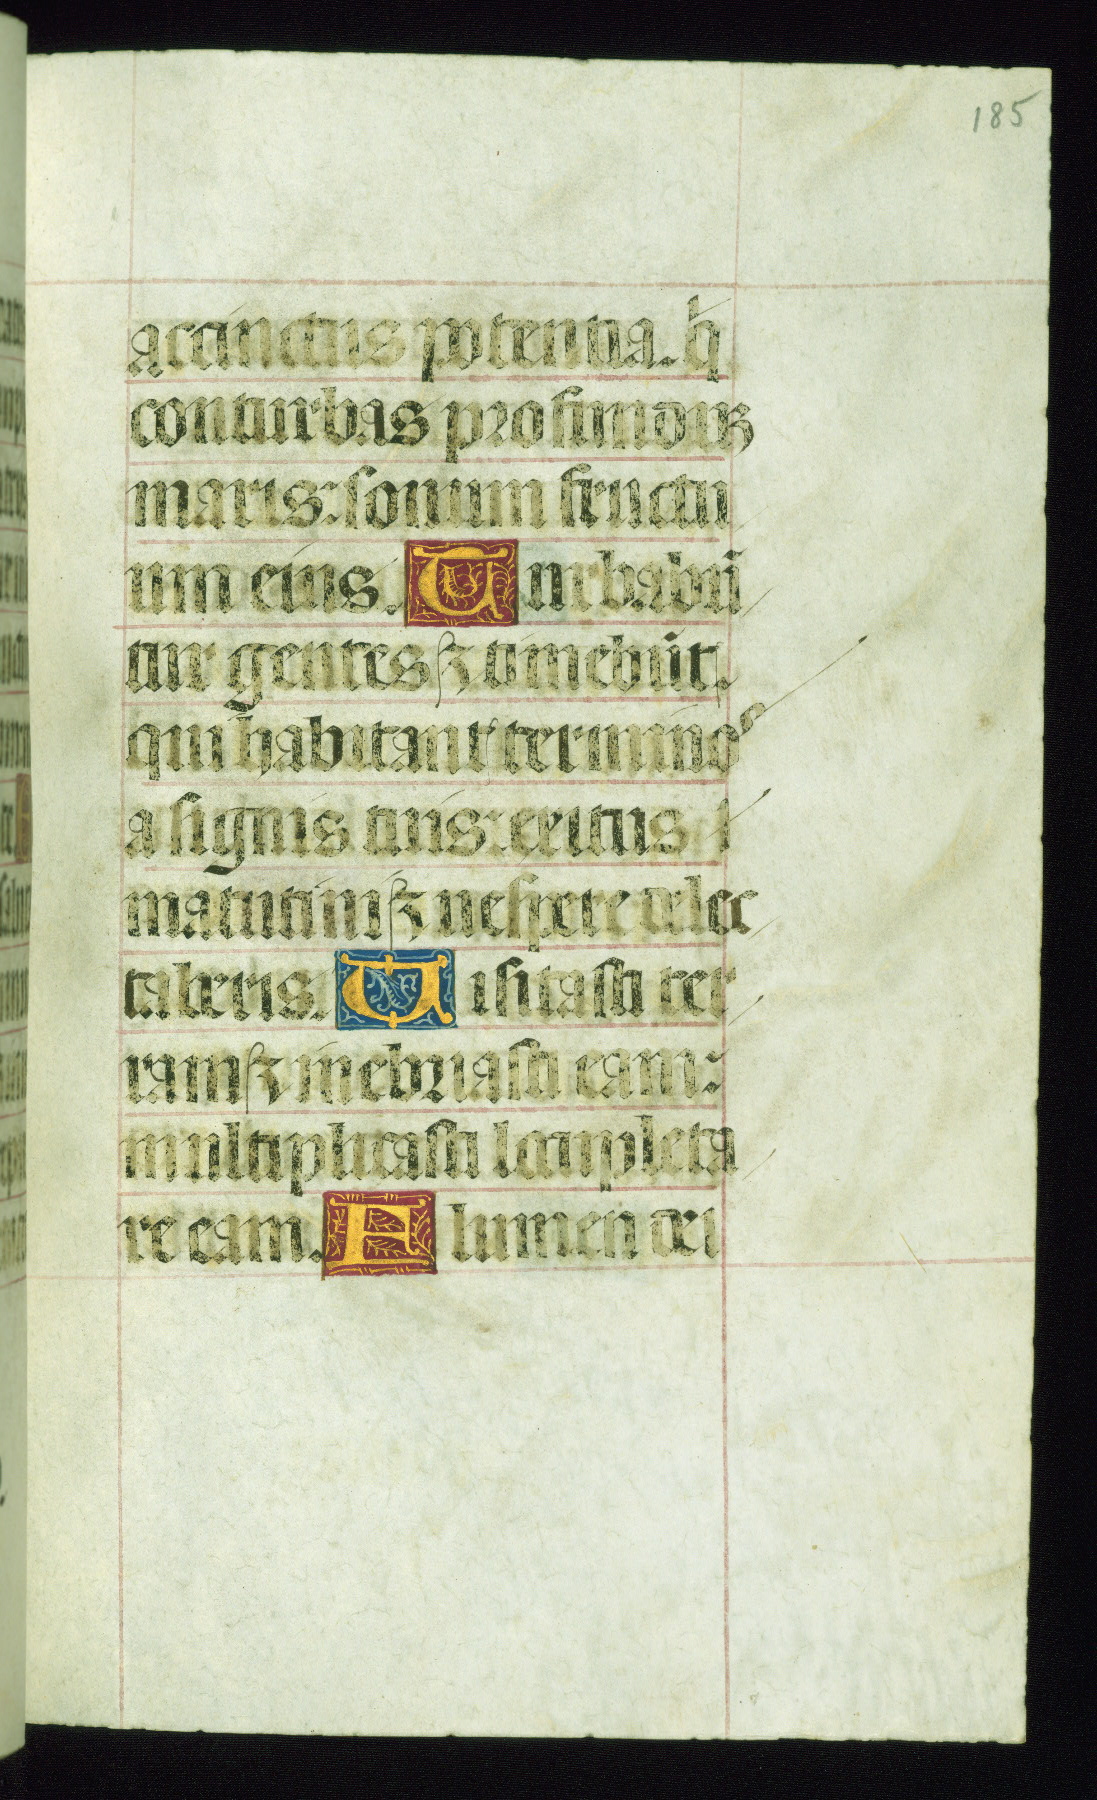 185
accinctus potentia. q̃
conturbas profundũ
maris: sonum fructu
um eius. Turbabũ
tur gentes ⁊ timebũt
qui habitant termino⁹
a signis tuis: exitus
matutini ⁊ uespere delec
taberis. Uisitasti ter
ram ⁊ inebriasti eam:
multiplicasti locupleta
re eam. Flumen dei